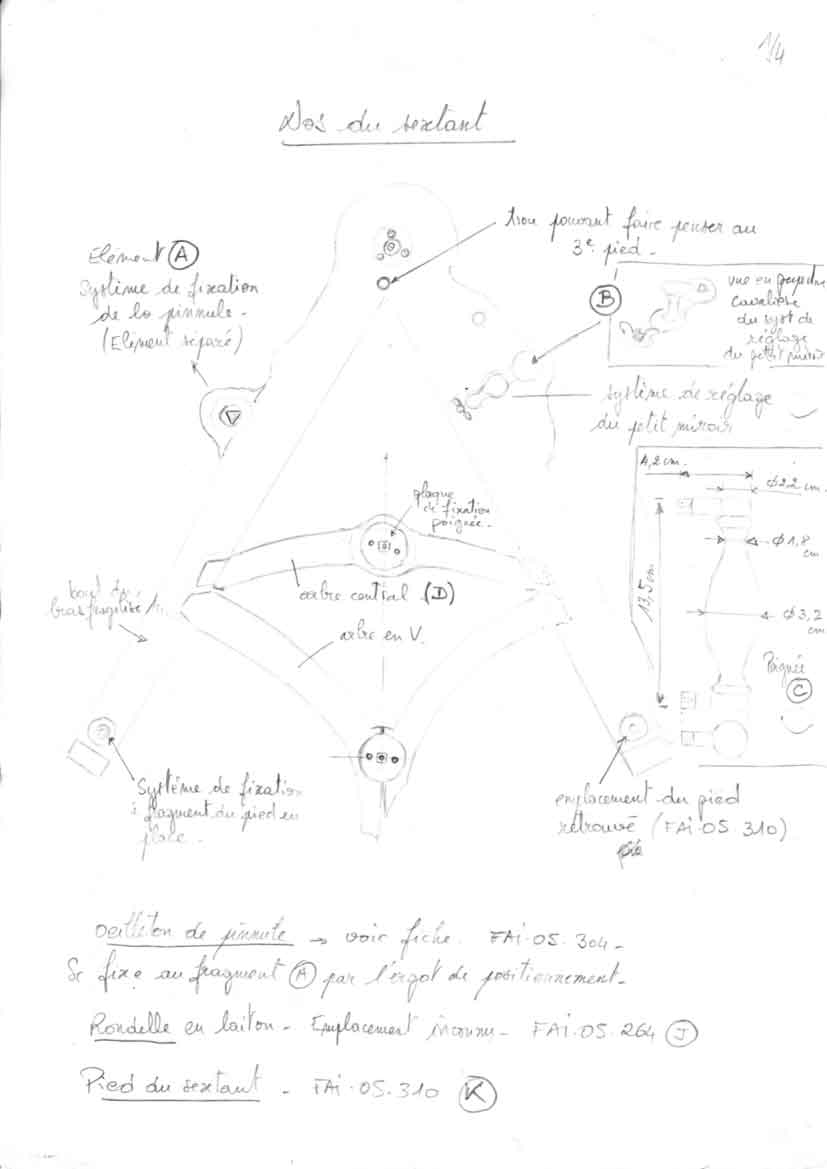 1/4
Dos du sextant
trou pouvant faire penser au
3e pied -
Elément (A)
Système de fixation
de la pinnule -
(Elément séparé)
(B)
vue en perspective
cavalière
du syst de
réglage
du petit miroir
système de réglage
du petit miroir
4,2 cm.
Ø 2,2 cm
plaque
de fixation
poignée -
Ø 1,8
cm
13,5 cm
arbre central (D)
bord du
bras
arbre en V.
Ø 3,2
cm
Poignée
(C)
Système de fixation
fragment du pied en
place -
emplacement du pied
retrouvé (FAi.OS.310)
Oeilleton de pinnule → voir fiche. FAi.OS.304 -
Se fixe au fragment (A) par l'ergot de positionnement -
Rondelle en laiton - Emplacement inconnu - FAi.OS.264 (J)
Pied du sextant - FAi.OS.310 (K)